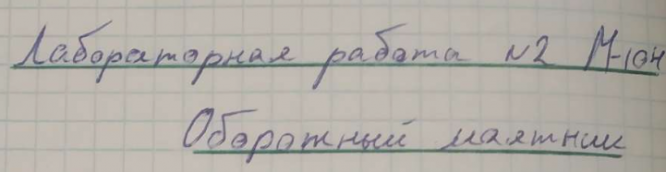 Лабораторная работа №2 М-104
Оборотный маятник